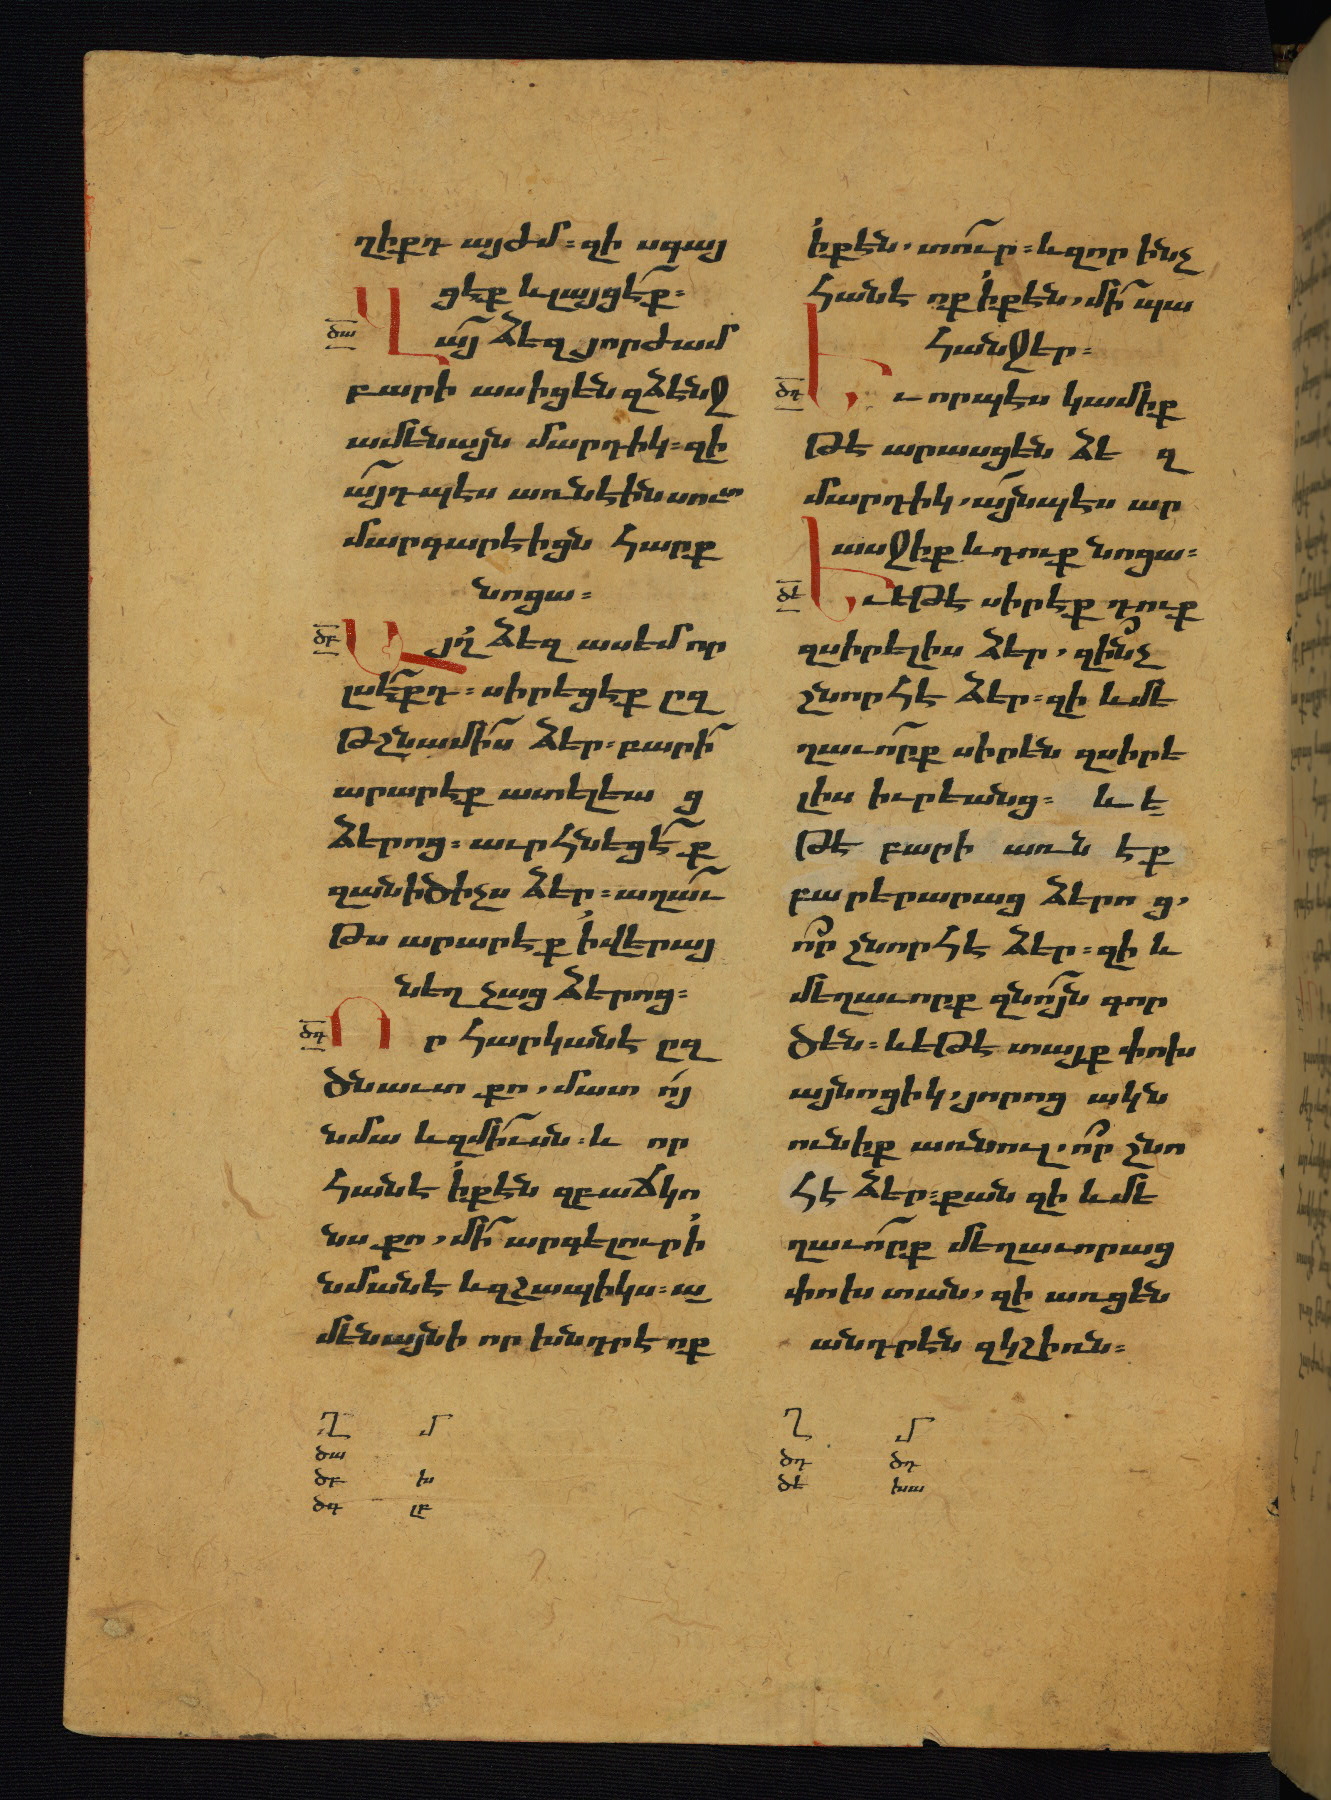 ղիքդ այժմ. զի սգայ
ցէք և լայցէք.
ծա
Վայ ձեզ յորժամ
բարի ասիցեն զձէնջ
ամենայն մարդիկ. զի
այդպէս առնեին սուտ
մարգարէիցն հարք
նոցա.
ծբ
Այլ ձեզ ասեմ որ
լսէքդ. սիրեցէք ըզ
թշնամիս ձեր. բարի
արարէք ատելեաց
ձերոց. աւրհնեցէք
զանիծիչս ձեր. աղաւ
թս արարէք ի վերայ
նեղչաց ձերոց.
ծգ
Որ հարկանէ ըզ
ծնաւտ քո, մատո՛
նմա և զմիւսն. և որ
հանէ ի քէն զբաճկո
նս քո, մի արգելուր ի
նմանէ և զշապիկս. ա
մենայնի որ խնդրէ ոք
ի քէն, տուր. և զոր ինչ
հանէ ոք ի քէն, մի պա
հանջեր.
ծդ
Եւ որպէս կամիք
թէ արասցեն ձե զ
մարդիկ, այնպէս ար
ասջիք և դուք նոցա.
ծե
Եւ եթէ սիրէք դուք
զսիրելիս ձեր, զինչ
շնորհ է ձեր. զի և մե
ղաւորք սիրեն զսիրե
լիս իւրեանց. և ե
թէ բարի առն էք
բարերարաց ձերոց,
որ շնորհ է ձեր. զի և
մեղաւորք զնոյն գոր
ծեն. և եթէ տայք փոխ
այնոցիկ, յորոց ակն
ունիք առնուլ, որ շնո
հ է ձեր. քան զի և մե
ղաւորք մեղաւորաց
փոխ տան, զի առցեն
անդրէն զկշիռն.
Ղ Մ
ծա
ծբ խ
ծգ լբ
Ղ Մ
ծդ ծդ
ծե խա